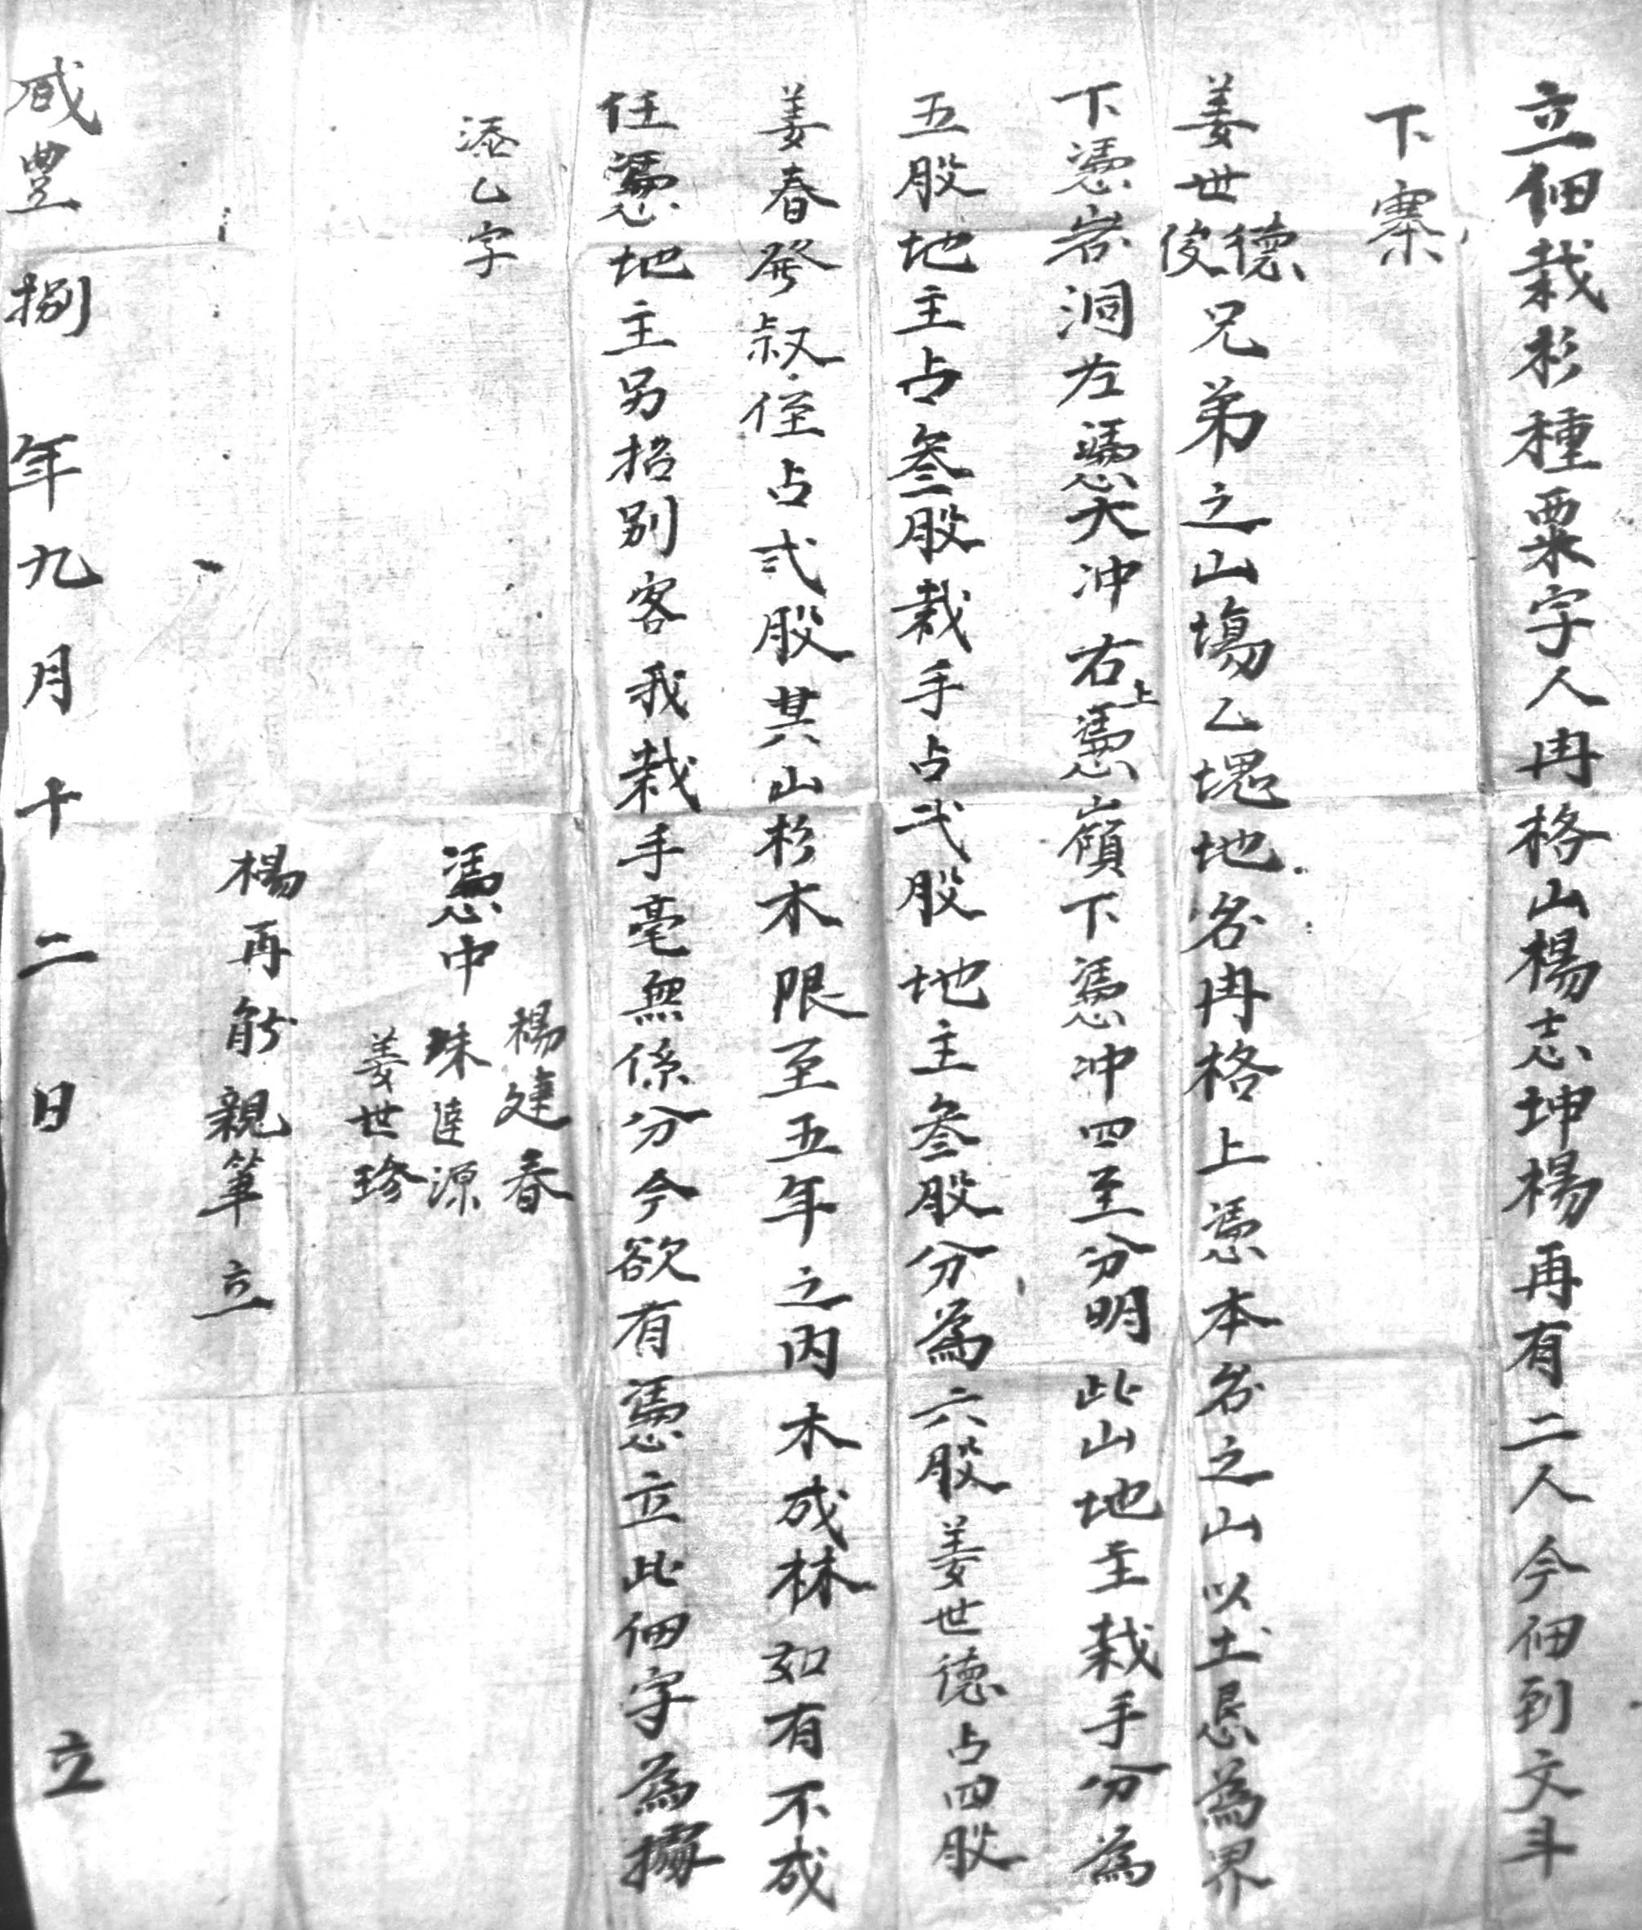 立佃栽杉種粟字人冉格山楊志坤楊再有二人今佃到文斗
下寨
姜世德俊兄弟之山塲乙塊地名冉格上憑本名之山以土忌為界
下憑岩洞左憑大冲右上憑嶺下憑冲四至分明此山地主栽手分為
五股地主占叁股栽手占弍股地主叁股分為六股姜世德占四股
姜春發叔侄占弍股其山杉木限至五年之内木成林如有不成
任憑地主另招别客我栽手毫無係分今欲有憑立此佃字為據
添乙字
楊建春
憑中 珠達源
姜世珍
楊再能親筆立
咸豐捌年九月十二日立